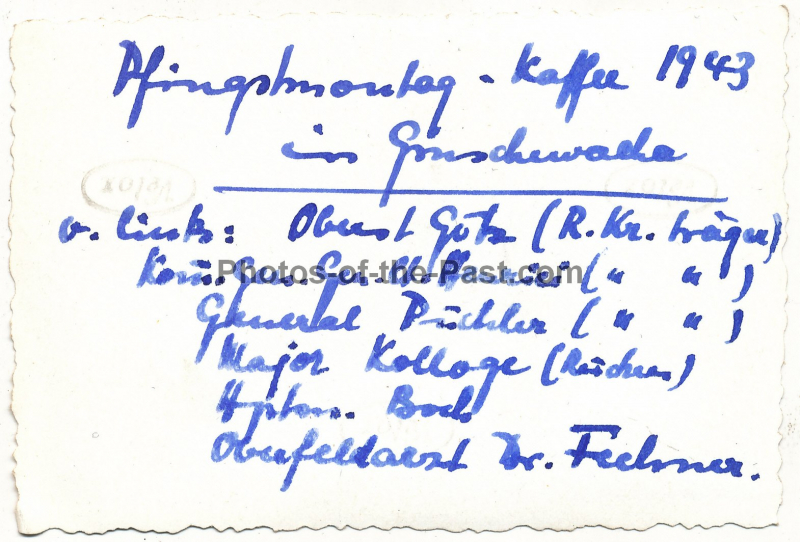 Pfingstmontag - Kaffee 1943
in Gruschewacha
v. links: Oberst Götz (R. Kr. träger)
Kom. Gen. Gen. (" ")
Photos-of-the-Past.com
General Püchler (" ")
Major Kolloge
Hptm. Bock
Oberfeldarzt Dr. Fechner.